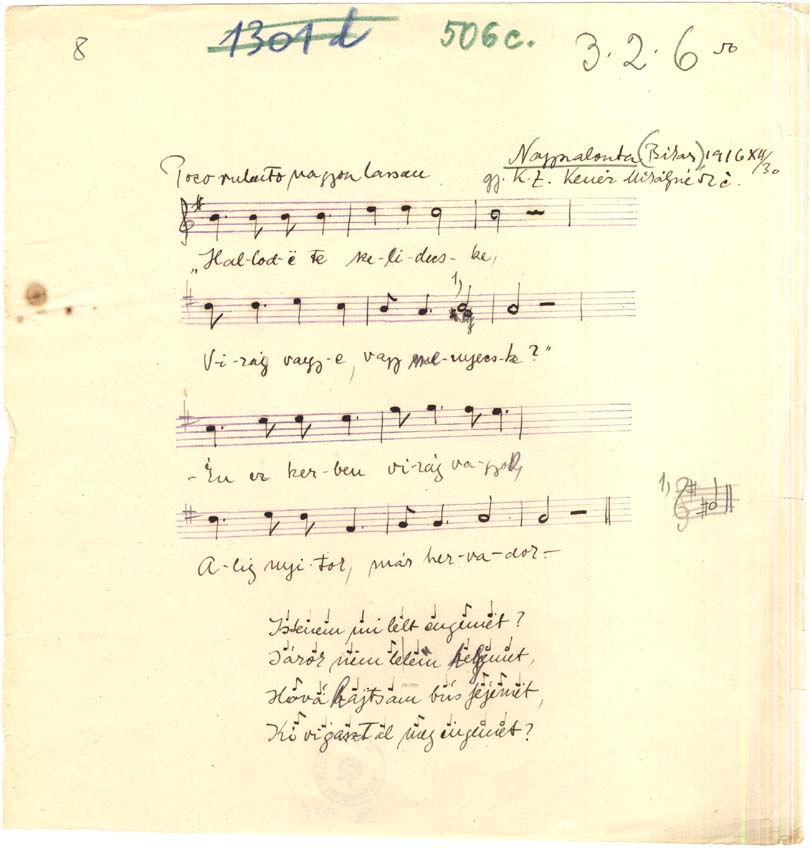 8 1301d 506c. 3.2.6
Poco rubato nagyon lassan. Nagyszalonta (Bihar), 1916 XII/30
gy. K. Z. Kenéz Mihályné
„Hal-lod-ë te ke-li-dus-ke,
1,
Vi-rág vagy-e, vagy me-nyecs-ke?"
- Én ez ker-ben vi-rág va-gyok,
1,
A-lig nyí-lok, már her-va-dok-
Istenem mi lelt engemet?
Járok nem lelem helyemet,
Hová hajtsam bús fejemet,
Ki vigasztal meg engemet?